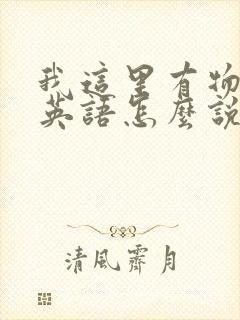 我這里有物
英語怎麼說
清風霽月